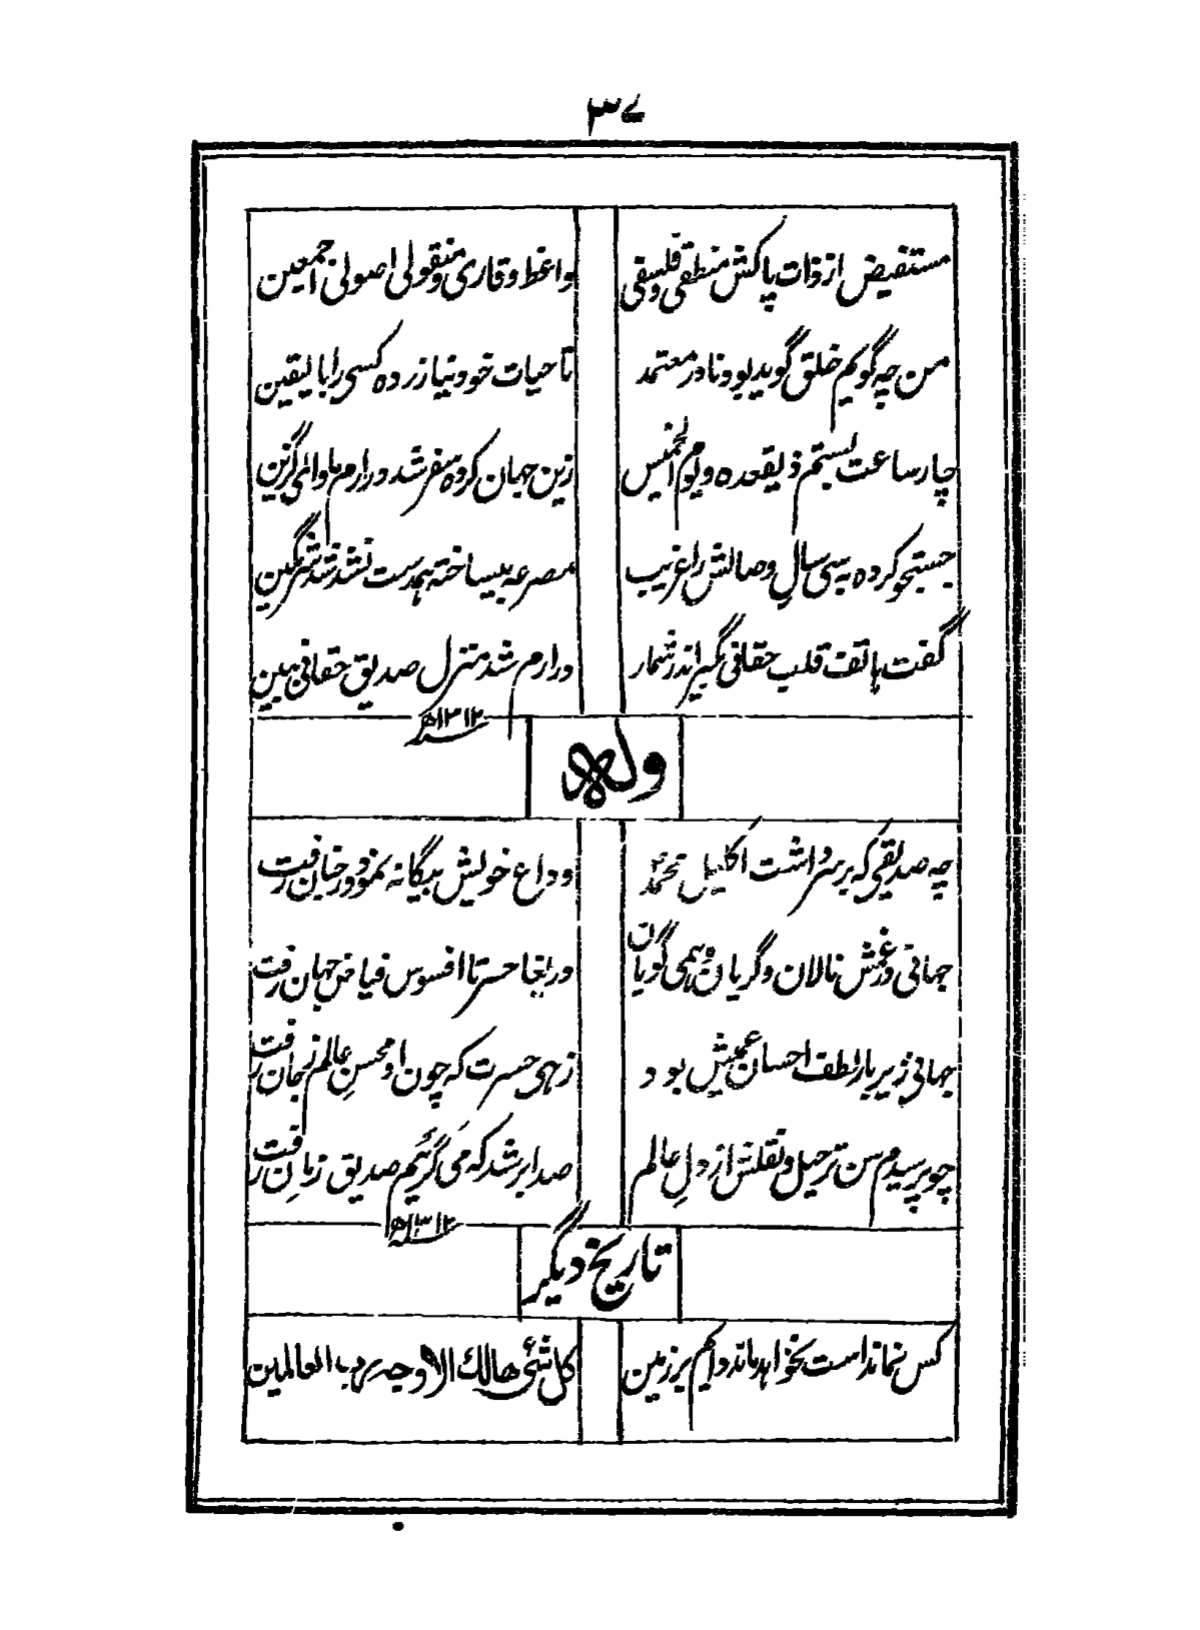 ۳۷
مستفیض از ذات پاکش منطقی و فلسفی واعظ و قاری و منقولی اصولی اجمعین
من چه گویم خلق گوید بود نادر معتمد تا حیات خود نیازرده کسی را بالیقین
چار ساعت بستم ذیقعده و یوم الخمیس زین جهان کرده سفر شد در ارم ماوای گزین
جستجو کرده پی سال وصالش را غریب مصرعه بیساخته همدست نشد شد شرمگین
گفت هاتف قلب حقانی بگیر اندر شمار در ارم شد منزل صدیق حقانی ببین
۱۳۱۲ھ
وله
چه صدیقی که بر سر داشت اکلیل محمد وداع خویش بیگانه نمود در جنان رفت
جهانی در غمش نالان و گریان همی گویان دریغا حسرتا افسوس فیاض جهان رفت
جهانی زیر بار لطف احسان عمیمش بود زهی حسرت که چون او محسن عالم ز جان رفت
چو پرسیدم سن ترحیل و نقلش از دل عالم صدا بر شد که می گرئیم صدیق زمان رفت
۱۳۱۲ھ
تاریخ دیگر
کس نماند است نخواهد ماند دایم بر زمین کل شئ هالك الا وجه رب العالمین